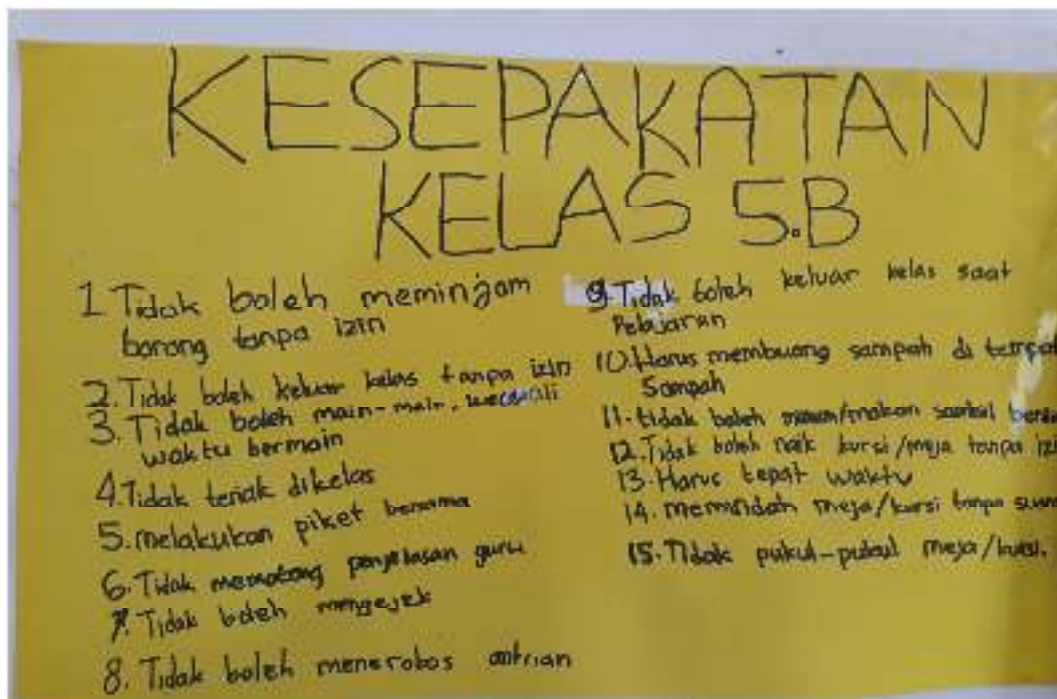 KESEPAKATAN
KELAS 5.B
1. Tidak boleh meminjam
barang tanpa izin
2. Tidak boleh keluar kelas tanpa izin
3. Tidak boleh main-main, kecuali
waktu bermain
4. Tidak teriak dikelas
5. melakukan piket bersama
6. Tidak memotong penjelasan guru
7. Tidak boleh mengejek
8. Tidak boleh menerobos antrian
9. Tidak boleh keluar kelas saat
Pelajaran
10. Harus membuang sampah di tempat
Sampah
11. tidak boleh minum/makan sambil
12. Tidak boleh naik kursi/meja tanpa
13. Harus tepat waktu
14. memindah meja/kursi tanpa
15. Tidak pukul-pukul meja/kursi.